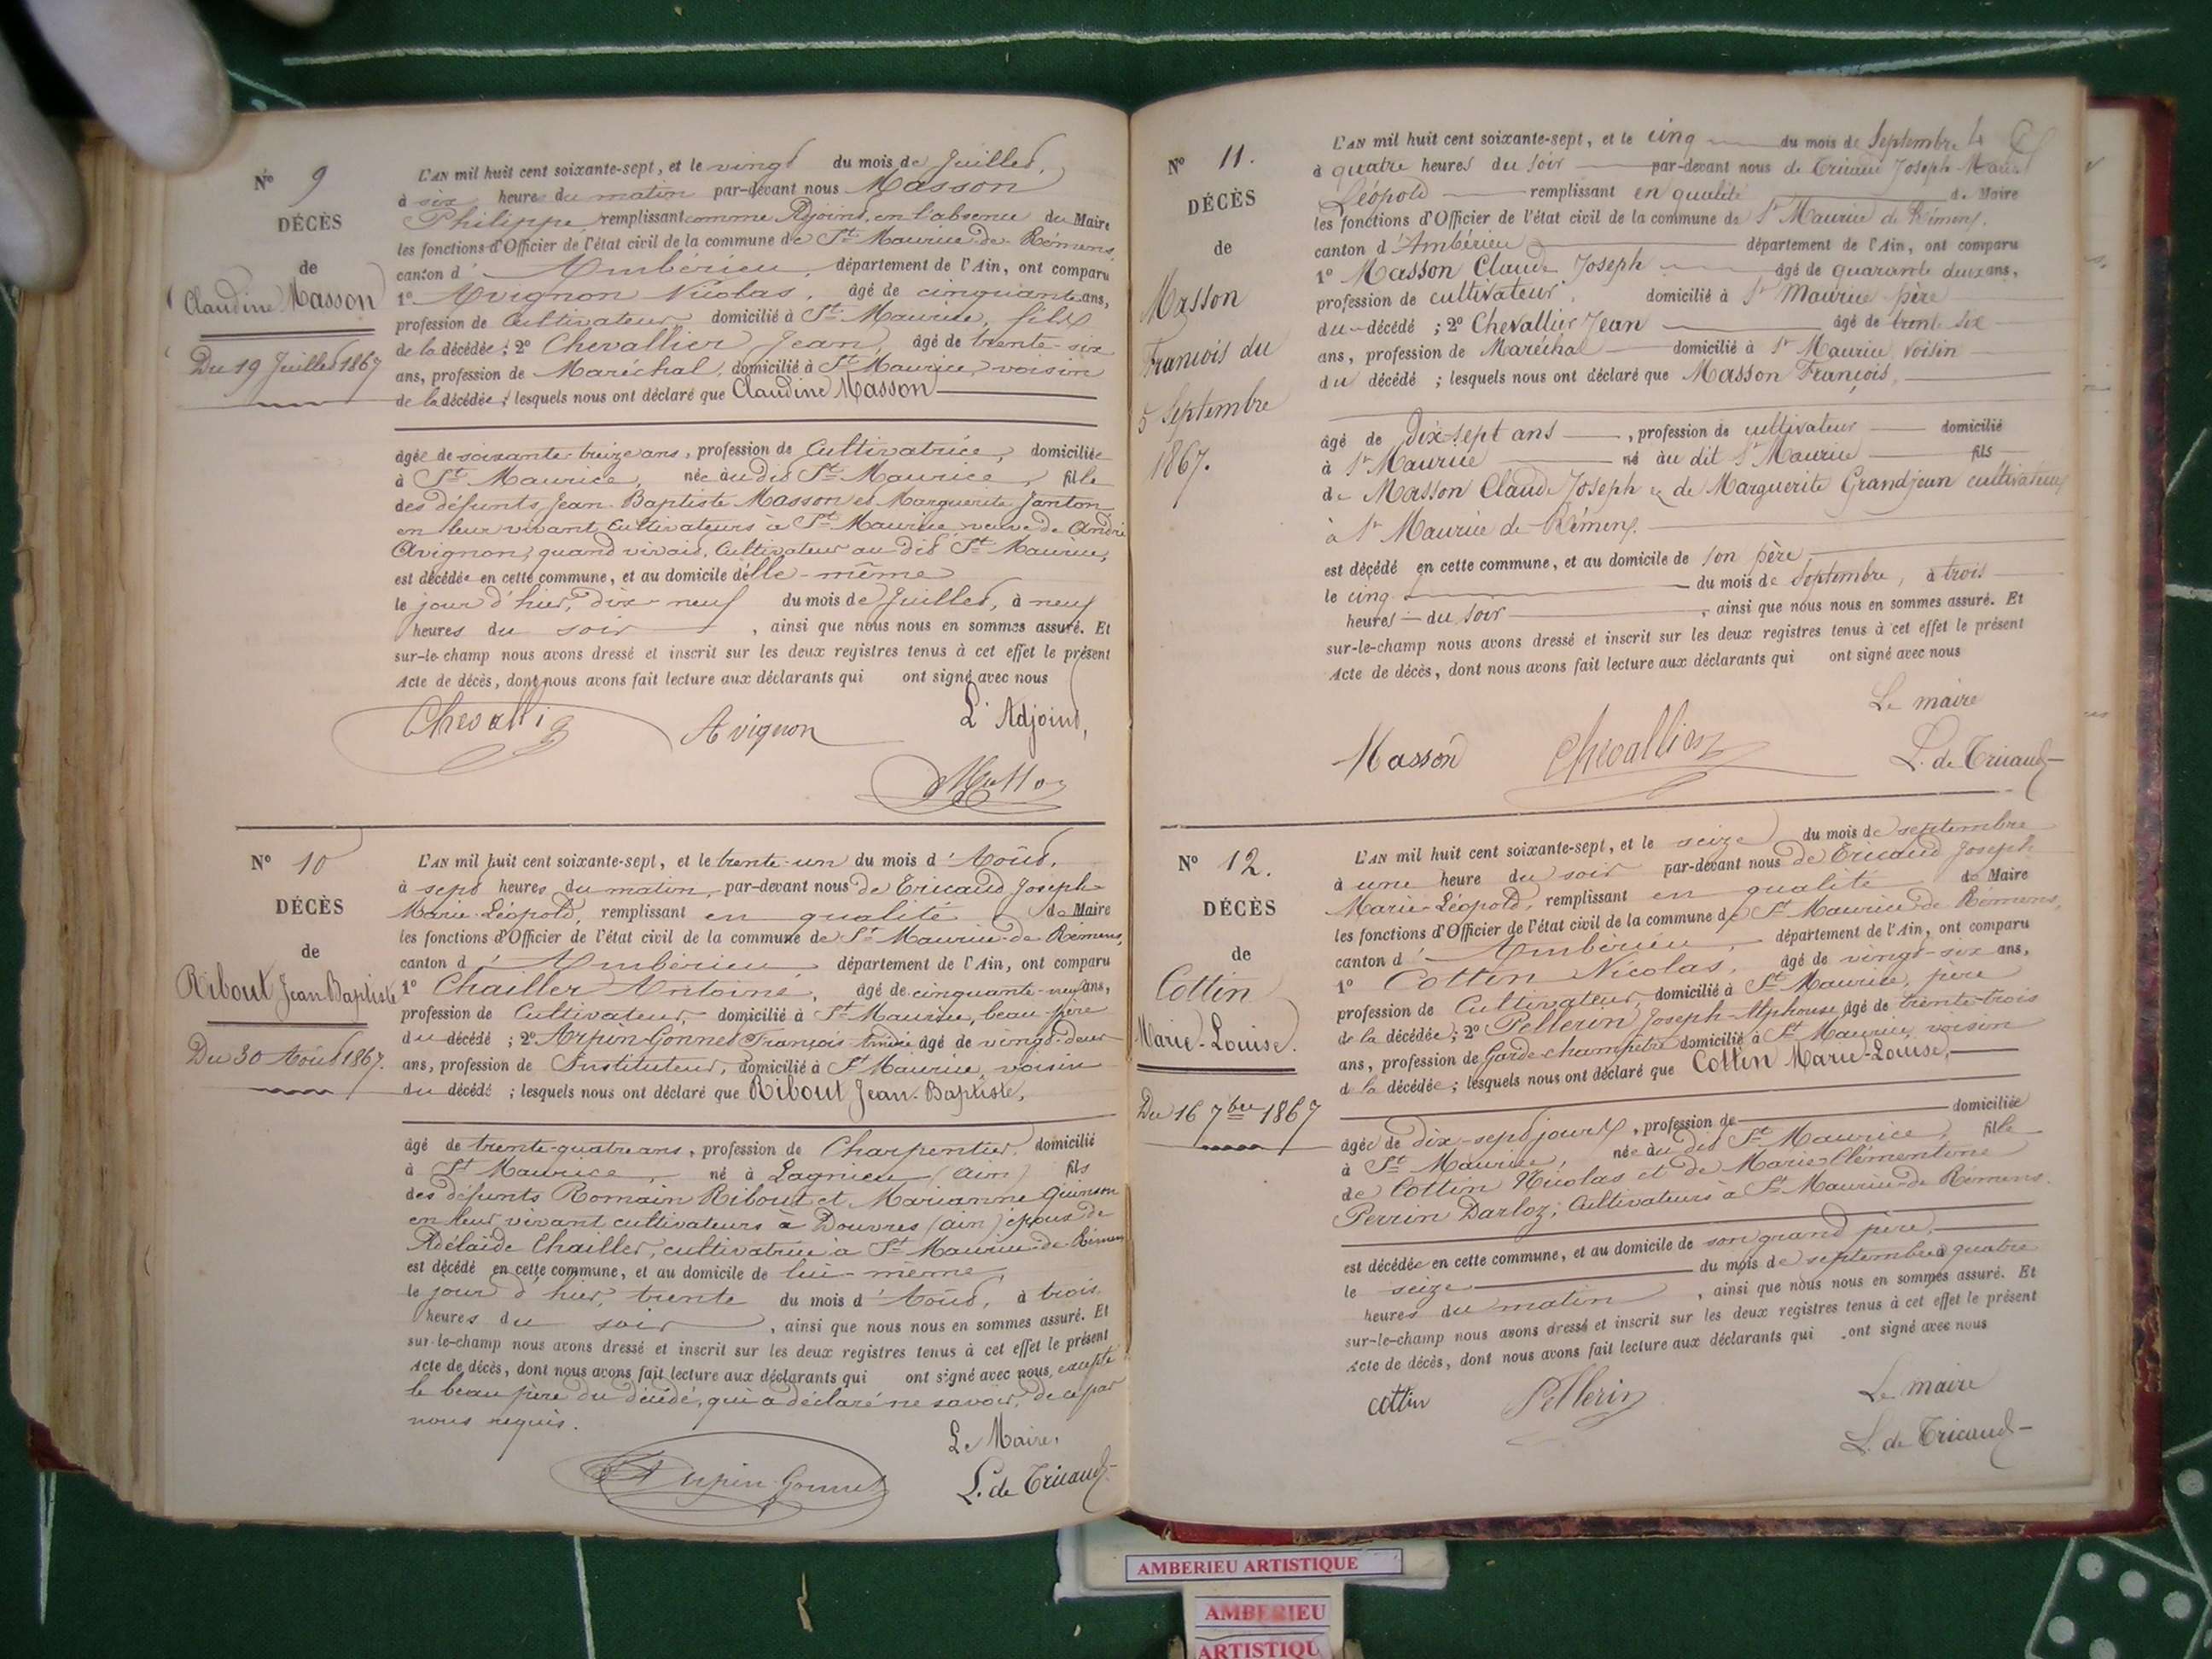 N° 9
DÉCÈS
de
Claudine Masson
Du 19 Juillet 1867
L'AN mil huit cent soixante-sept, et le vingt du mois de Juillet,
à six heures du matin par-devant nous Masson
Philippe, remplissant comme Adjoint, en l'absence du Maire
les fonctions d'Officier de l'état civil de la commune de St Maurice-de-Rémens,
canton d'Ambérieu, département de l'Ain, ont comparu
1° Avignon Nicolas, âgé de cinquante ans,
profession de Cultivateur domicilié à St Maurice, fils
de la décédée; 2° Chevallier Jean, âgé de trente-six
ans, profession de Maréchal, domicilié à St Maurice, voisin
de la décédée; lesquels nous ont déclaré que Claudine Masson
âgée de soixante-treize ans, profession de Cultivatrice, domiciliée
à St Maurice, née audit St Maurice, fille
des défunts Jean-Baptiste Masson et Marguerite Janton
en leur vivant Cultivateurs à St Maurice, veuve de André
Avignon, quand vivait, Cultivateur au dit St Maurice,
est décédée en cette commune, et au domicile d'elle-même
le jour d'hier, dix-neuf du mois de Juillet, à neuf
heures du soir, ainsi que nous nous en sommes assuré. Et
sur-le-champ nous avons dressé et inscrit sur les deux registres tenus à cet effet le présent
Acte de décès, dont nous avons fait lecture aux déclarants qui ont signé avec nous
Chevallier Avignon L'Adjoint,
N° 10
DÉCÈS
de
Ribout Jean-Baptiste
Du 30 Août 1867.
L'AN mil huit cent soixante-sept, et le trente-un du mois d'Août,
à sept heures du matin, par-devant nous de Tricaud Joseph-
Marie-Léopold, remplissant en qualité de Maire
les fonctions d'Officier de l'état civil de la commune de St Maurice-de-Rémens,
canton d'Ambérieu département de l'Ain, ont comparu
1° Chailler Antoine, âgé de cinquante-neuf ans,
profession de Cultivateur, domicilié à St Maurice, beau-père
du décédé; 2° Arpin-Gonnet François âgé de vingt-deux
ans, profession de Instituteur, domicilié à St Maurice, voisin
du décédé; lesquels nous ont déclaré que Ribout Jean-Baptiste,
âgé de trente-quatre ans, profession de Charpentier, domicilié
à St Maurice, né à Lagnieu (Ain) fils
des défunts Romain Ribout et Marianne Quinson
en leur vivant cultivateurs à Douvres (ain) époux de
Adélaïde Chailler, cultivatrice à St Maurice-de-Rémens
est décédé en cette commune, et au domicile de lui-même,
le jour d'hier, trente du mois d'Août, à trois
heures du soir, ainsi que nous nous en sommes assuré. Et
sur-le-champ nous avons dressé et inscrit sur les deux registres tenus à cet effet le présent
Acte de décès, dont nous avons fait lecture aux déclarants qui ont signé avec nous, excepté
le beau père du décédé, qui a déclaré ne savoir, de ce par
nous requis.
Le Maire,
Arpin Gonnet L. de Tricaud
N° 11.
DÉCÈS
de
Masson
François du
5 Septembre
1867.
L'AN mil huit cent soixante-sept, et le cinq du mois de Septembre
à quatre heures du soir par-devant nous de Tricaud Joseph-Marie
Léopold remplissant en qualité de Maire
les fonctions d'Officier de l'état civil de la commune de St Maurice de Rémens.
canton d'Ambérieu département de l'Ain, ont comparu
1° Masson Claude Joseph âgé de quarante deux ans,
profession de cultivateur, domicilié à St Maurice père
du décédé; 2° Chevallier Jean âgé de trente six
ans, profession de Maréchal domicilié à St Maurice, voisin
du décédé; lesquels nous ont déclaré que Masson François,
âgé de Dix-sept ans, profession de cultivateur domicilié
à St Maurice né au dit St Maurice fils
de Masson Claude Joseph & de Marguerite Grandjean cultivateurs
à St Maurice de Rémens.
est décédé en cette commune, et au domicile de son père
le cinq du mois de Septembre, à trois
heures du soir, ainsi que nous nous en sommes assuré. Et
sur-le-champ nous avons dressé et inscrit sur les deux registres tenus à cet effet le présent
Acte de décès, dont nous avons fait lecture aux déclarants qui ont signé avec nous
Le maire
Masson Chevallier L. de Tricaud
N° 12.
DÉCÈS
de
Cottin
Marie-Louise.
Du 16 7bre 1867
L'AN mil huit cent soixante-sept, et le seize du mois de septembre
à une heure du soir par-devant nous de Tricaud Joseph
Marie-Léopold, remplissant en qualité de Maire
les fonctions d'Officier de l'état civil de la commune de St Maurice-de-Rémens,
canton d'Ambérieu, département de l'Ain, ont comparu
1° Cottin Nicolas, âgé de vingt-six ans,
profession de Cultivateur, domicilié à St Maurice, père
de la décédée; 2° Pellerin Joseph-Alphonse, âgé de trente-trois
ans, profession de Garde-champêtre domicilié à St Maurice, voisin
de la décédée; lesquels nous ont déclaré que Cottin Marie-Louise,
âgée de dix-sept jours, profession de domiciliée
à St Maurice, née au dit St Maurice, fille
de Cottin Nicolas et de Marie Clémentine
Perrin Darloz, Cultivateurs à St Maurice-de-Rémens.
est décédée en cette commune, et au domicile de son grand père,
le seize du mois de septembre à quatre
heures du matin, ainsi que nous nous en sommes assuré. Et
sur-le-champ nous avons dressé et inscrit sur les deux registres tenus à cet effet le présent
Acte de décès, dont nous avons fait lecture aux déclarants qui ont signé avec nous
cottin Pellerin Le maire
L. de Tricaud
AMBERIEU ARTISTIQUE
AMBERIEU
ARTISTIQU